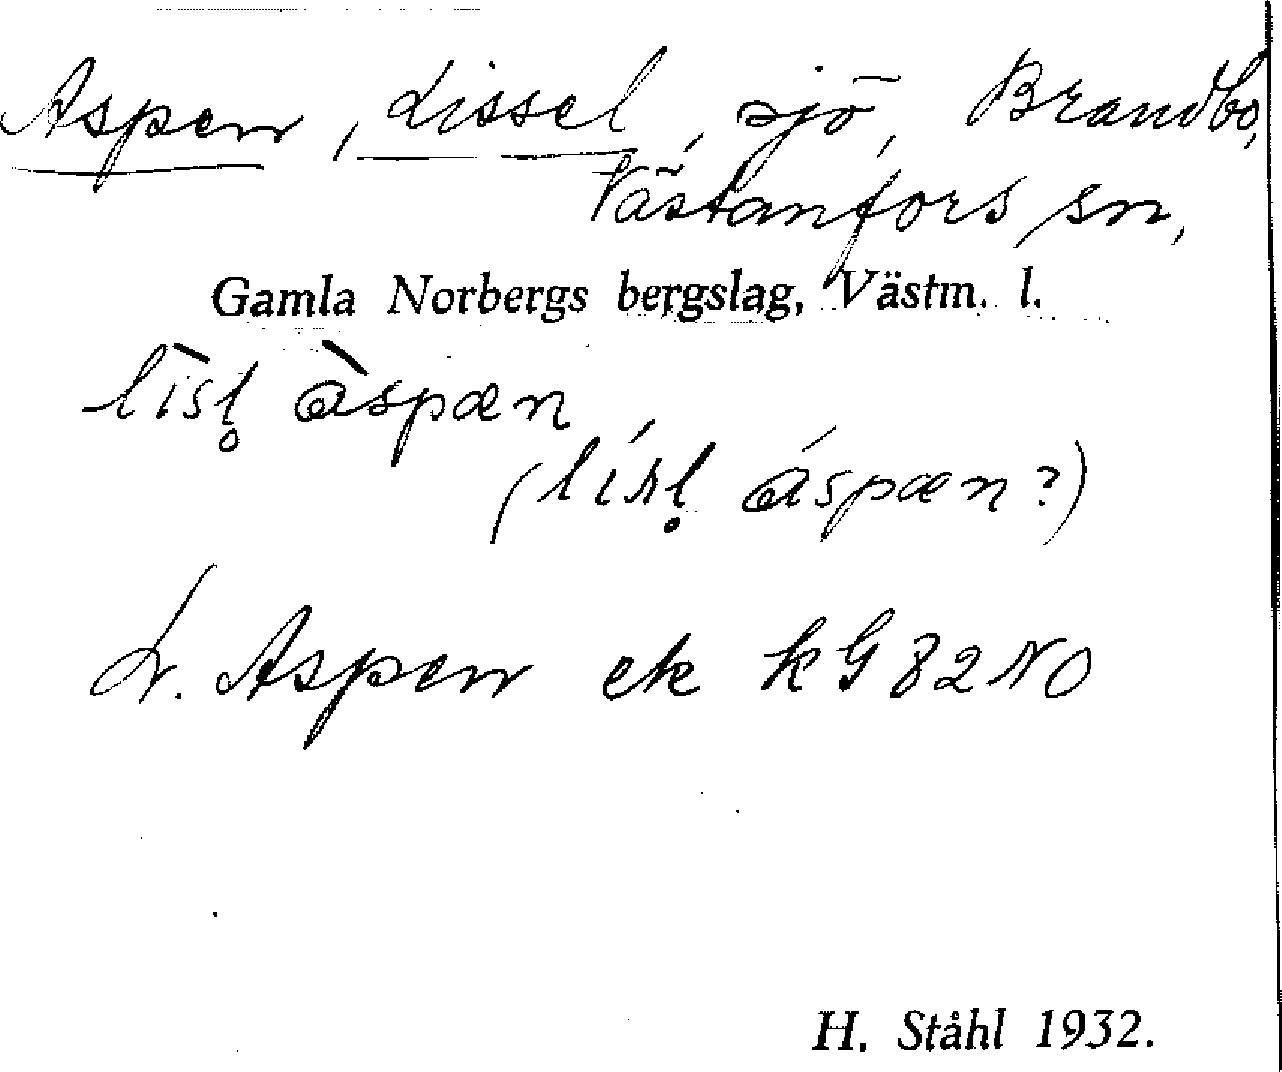 Aspen, Lissel, sjö, Brandbo,
Västanfors sn,
Gamla Norbergs bergslag, Västm. l.
lìsl̥ àspæn
(lísl̥ áspæn?)
L. Aspen ek KG 82 NO
H. Ståhl 1932.